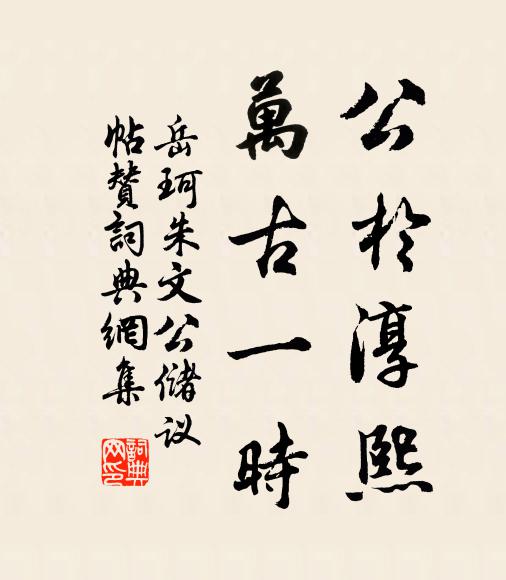 公於淳熙
萬古一時
岳珂朱文公儲议
帖贊詞典網集
詞典網印